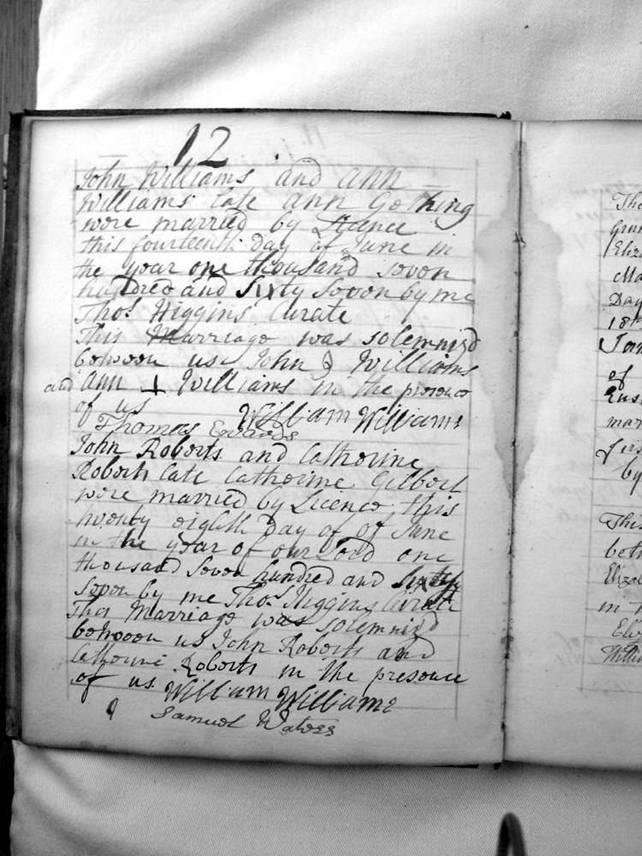 12
John Williams and ann
Williams late ann Gothing
were married by Licence
this fourteenth day of June in
the year one thousand seven
hundred and sixty seven by me
Thos. Higgins Curate
This Marriage was solemnizd
between us John Williams
and Ann Williams in the presence
of us William Williams
Thomas Edwards
John Roberts and Catherine
Roberts late Catherine Gilbert
were married by Licence, this
twenty eighth Day of of June
in the year of our Lord one
thousand seven hundred and sixty
seven by me Thos. Higgins Curate
This Marriage was solemnizd
between us John Roberts and
Catherine Roberts in the presence
of us William Williams
Samuel
The
Day
18th
of
by
This
in